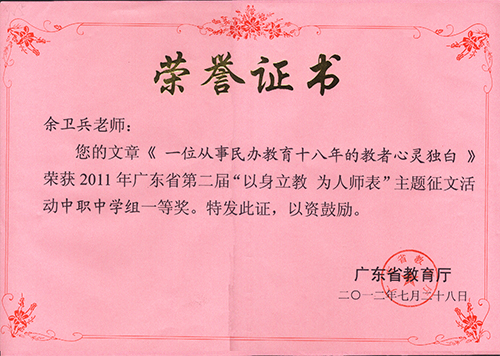 荣誉证书
余卫兵老师：
您的文章《 一位从事民办教育十八年的教者心灵独白 》
荣获2011年广东省第二届“以身立教 为人师表”主题征文活
动中职中学组一等奖。特发此证，以资鼓励。
广东省教育厅
二〇一二年七月二十八日